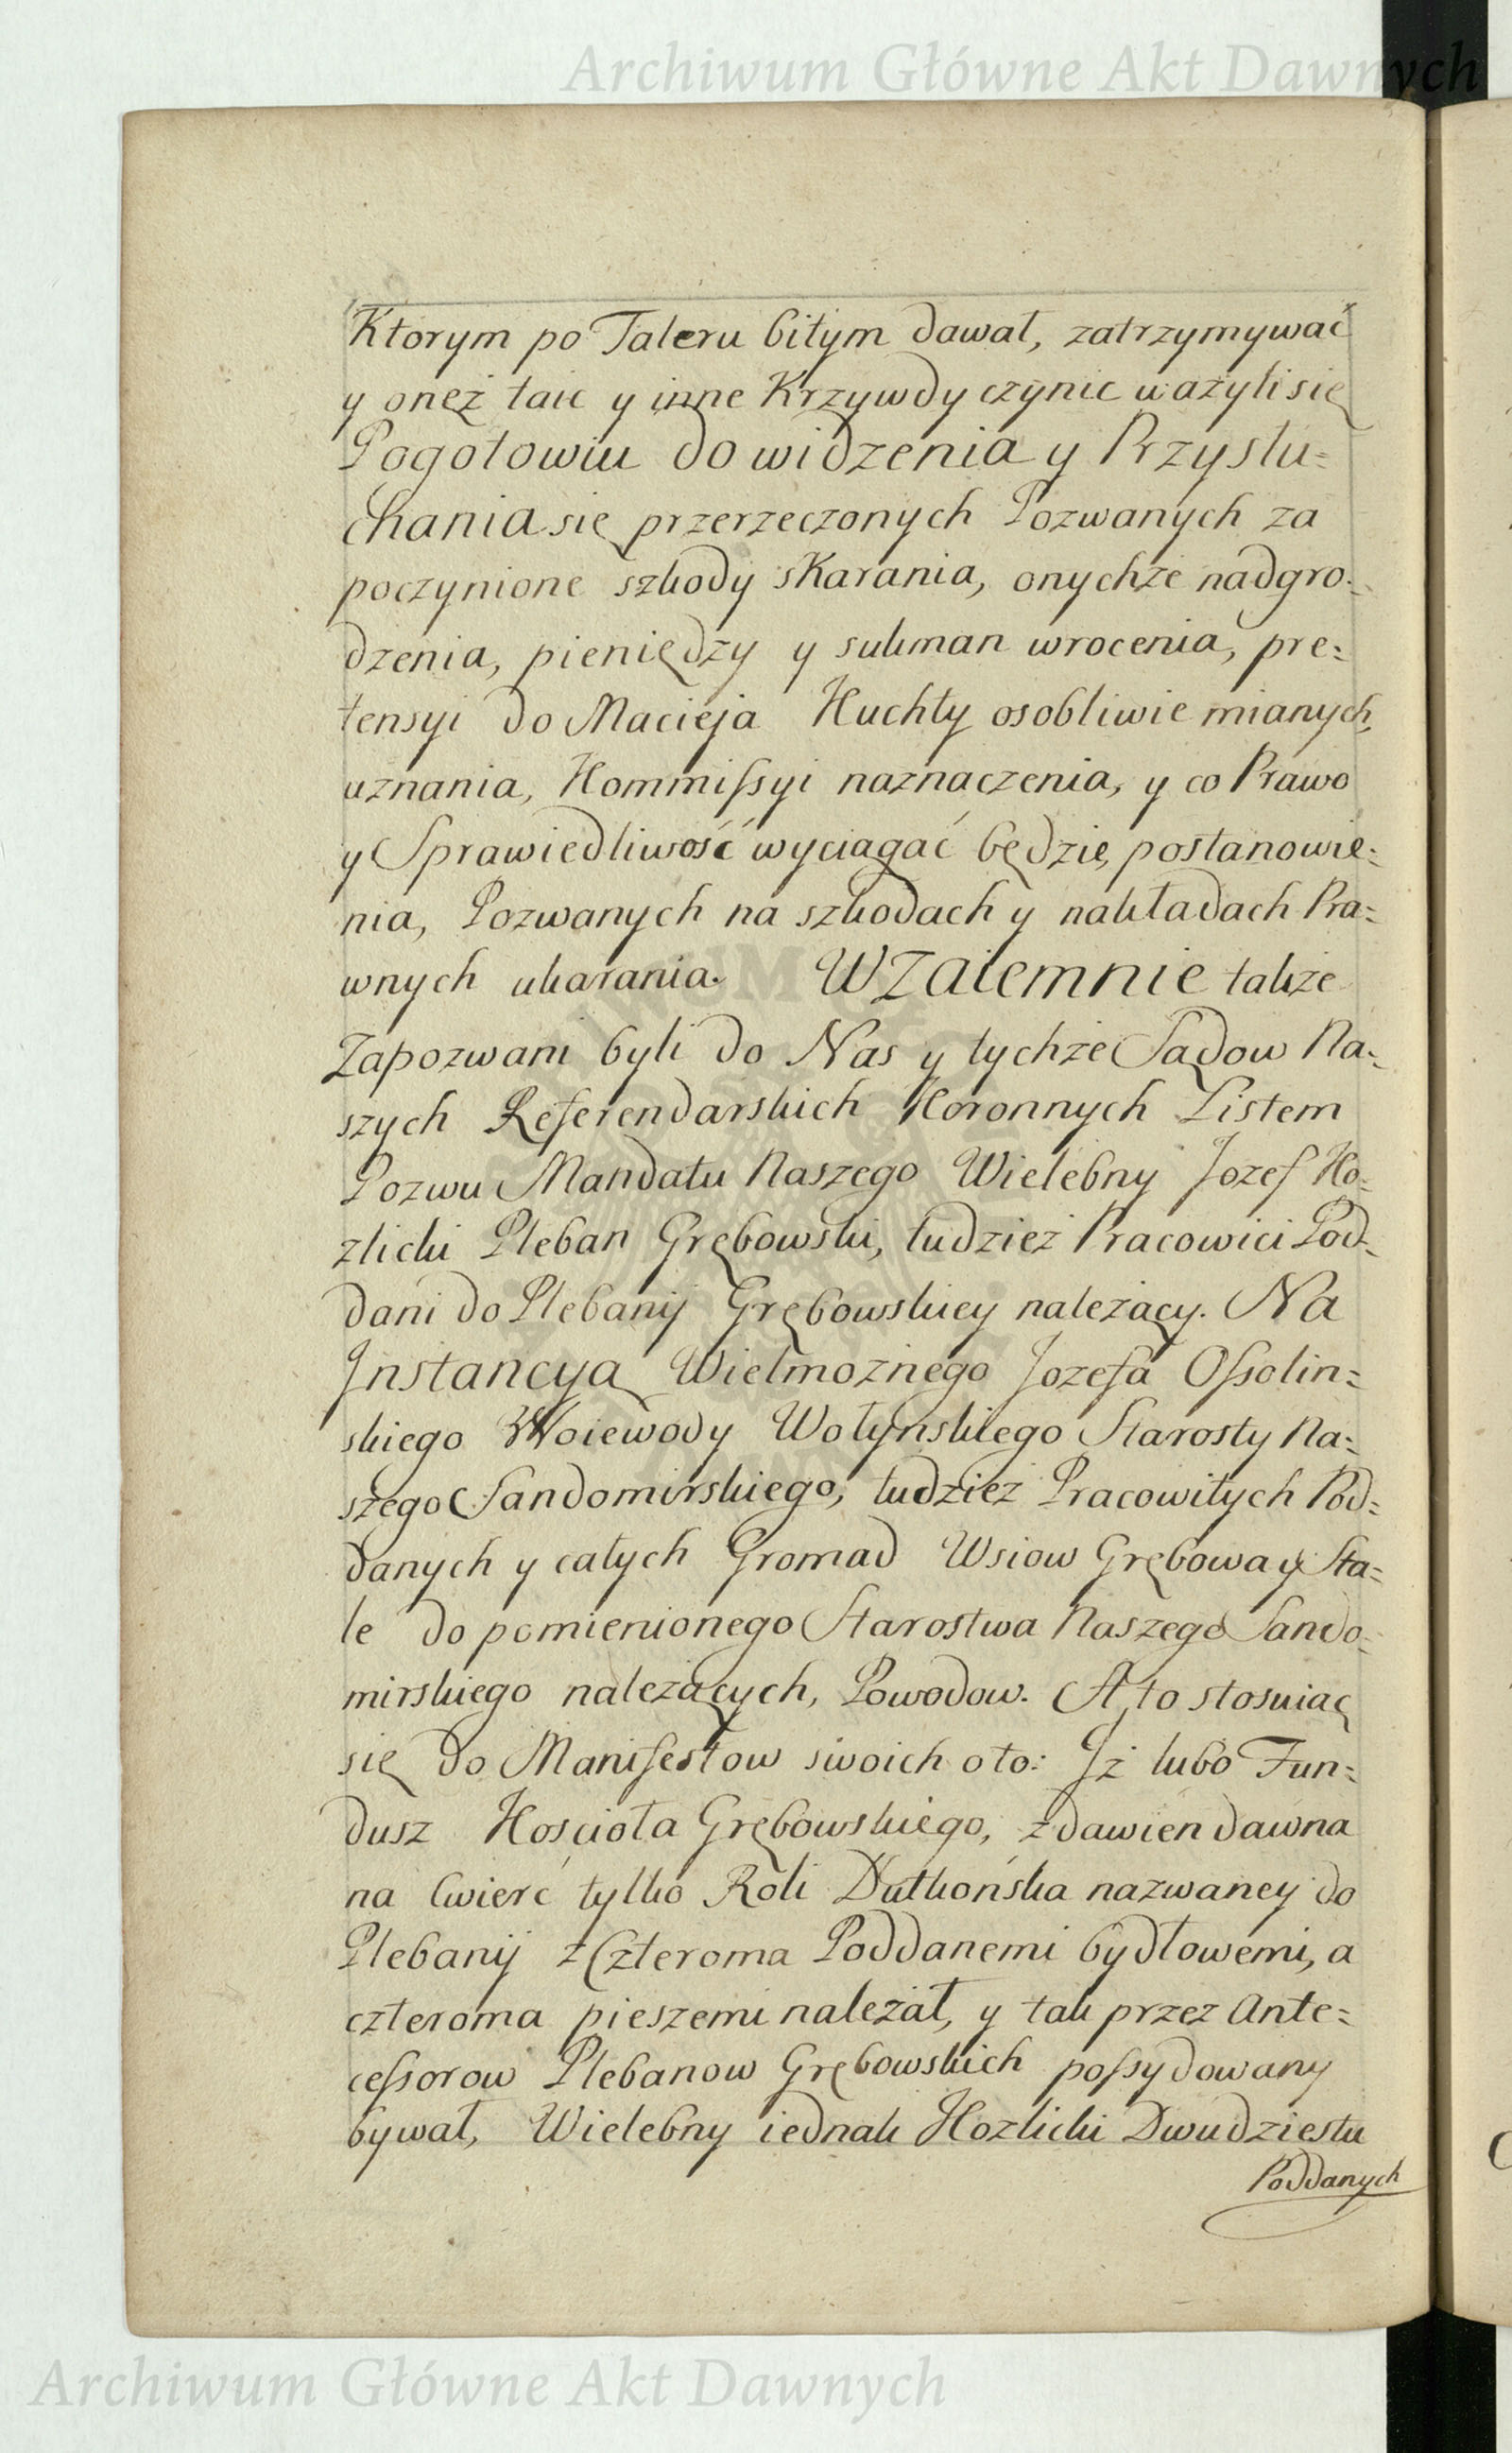 Archiwum Główne Akt Dawnych
Ktorym po Taleru bitym dawał, zatrzymywać
y oneż taic y inne Krzywdy czynic ważyli się
Pogotowiu do widzenia y Przysłu=
chania się przerzeczonych Pozwanych za
poczynione szkody skarania, onychże nadgro=
dzenia, pieniędzy y sukman wrocenia, pre=
tensyi do Macieja Kuchty osobliwie mianych,
uznania, Kommiſsyi naznaczenia, y co Prawo
y Sprawiedliwość wyciagać będzie, postanowie=
nia, Pozwanych na szkodach y nakładach Pra=
wnych ukarania. Wzaiemnie także
Zapozwani byli do Nas y tychże Sądow Na=
szych Referendarskich Koronnych Listem
Pozwu Mandatu Naszego Wielebny Jozef Ko=
zlicki Pleban Grębowski, tudzież Pracowici Pod=
dani do Plebanij Grębowskiey należący. Na
Instancyą Wielmożnego Jozefa Oſsolin=
skiego Woiewody Wołynskiego Starosty Na=
szego Sandomirskiego, tudzież Pracowitych Pod=
danych y całych Gromad Wsiow Grębowa y Sta=
le do pomienionego Starostwa Naszego Sando=
mirskiego należących, Powodow. A to stosuiąc
się do Manifestow swoich oto: Iż lubo Fun=
dusz Kościoła Grębowskiego, z dawien dawna
na Cwierć tylko Roli Dutkońska nazwaney do
Plebanij z Czteroma Poddanemi bydłowemi, a
czteroma pieszemi należał, y tak przez Ante=
ceſsorow Plebanow Grębowskich poſsydowany
bywał, Wielebny iednak Kozlicki Dwudziestu
Poddanych
Archiwum Główne Akt Dawnych